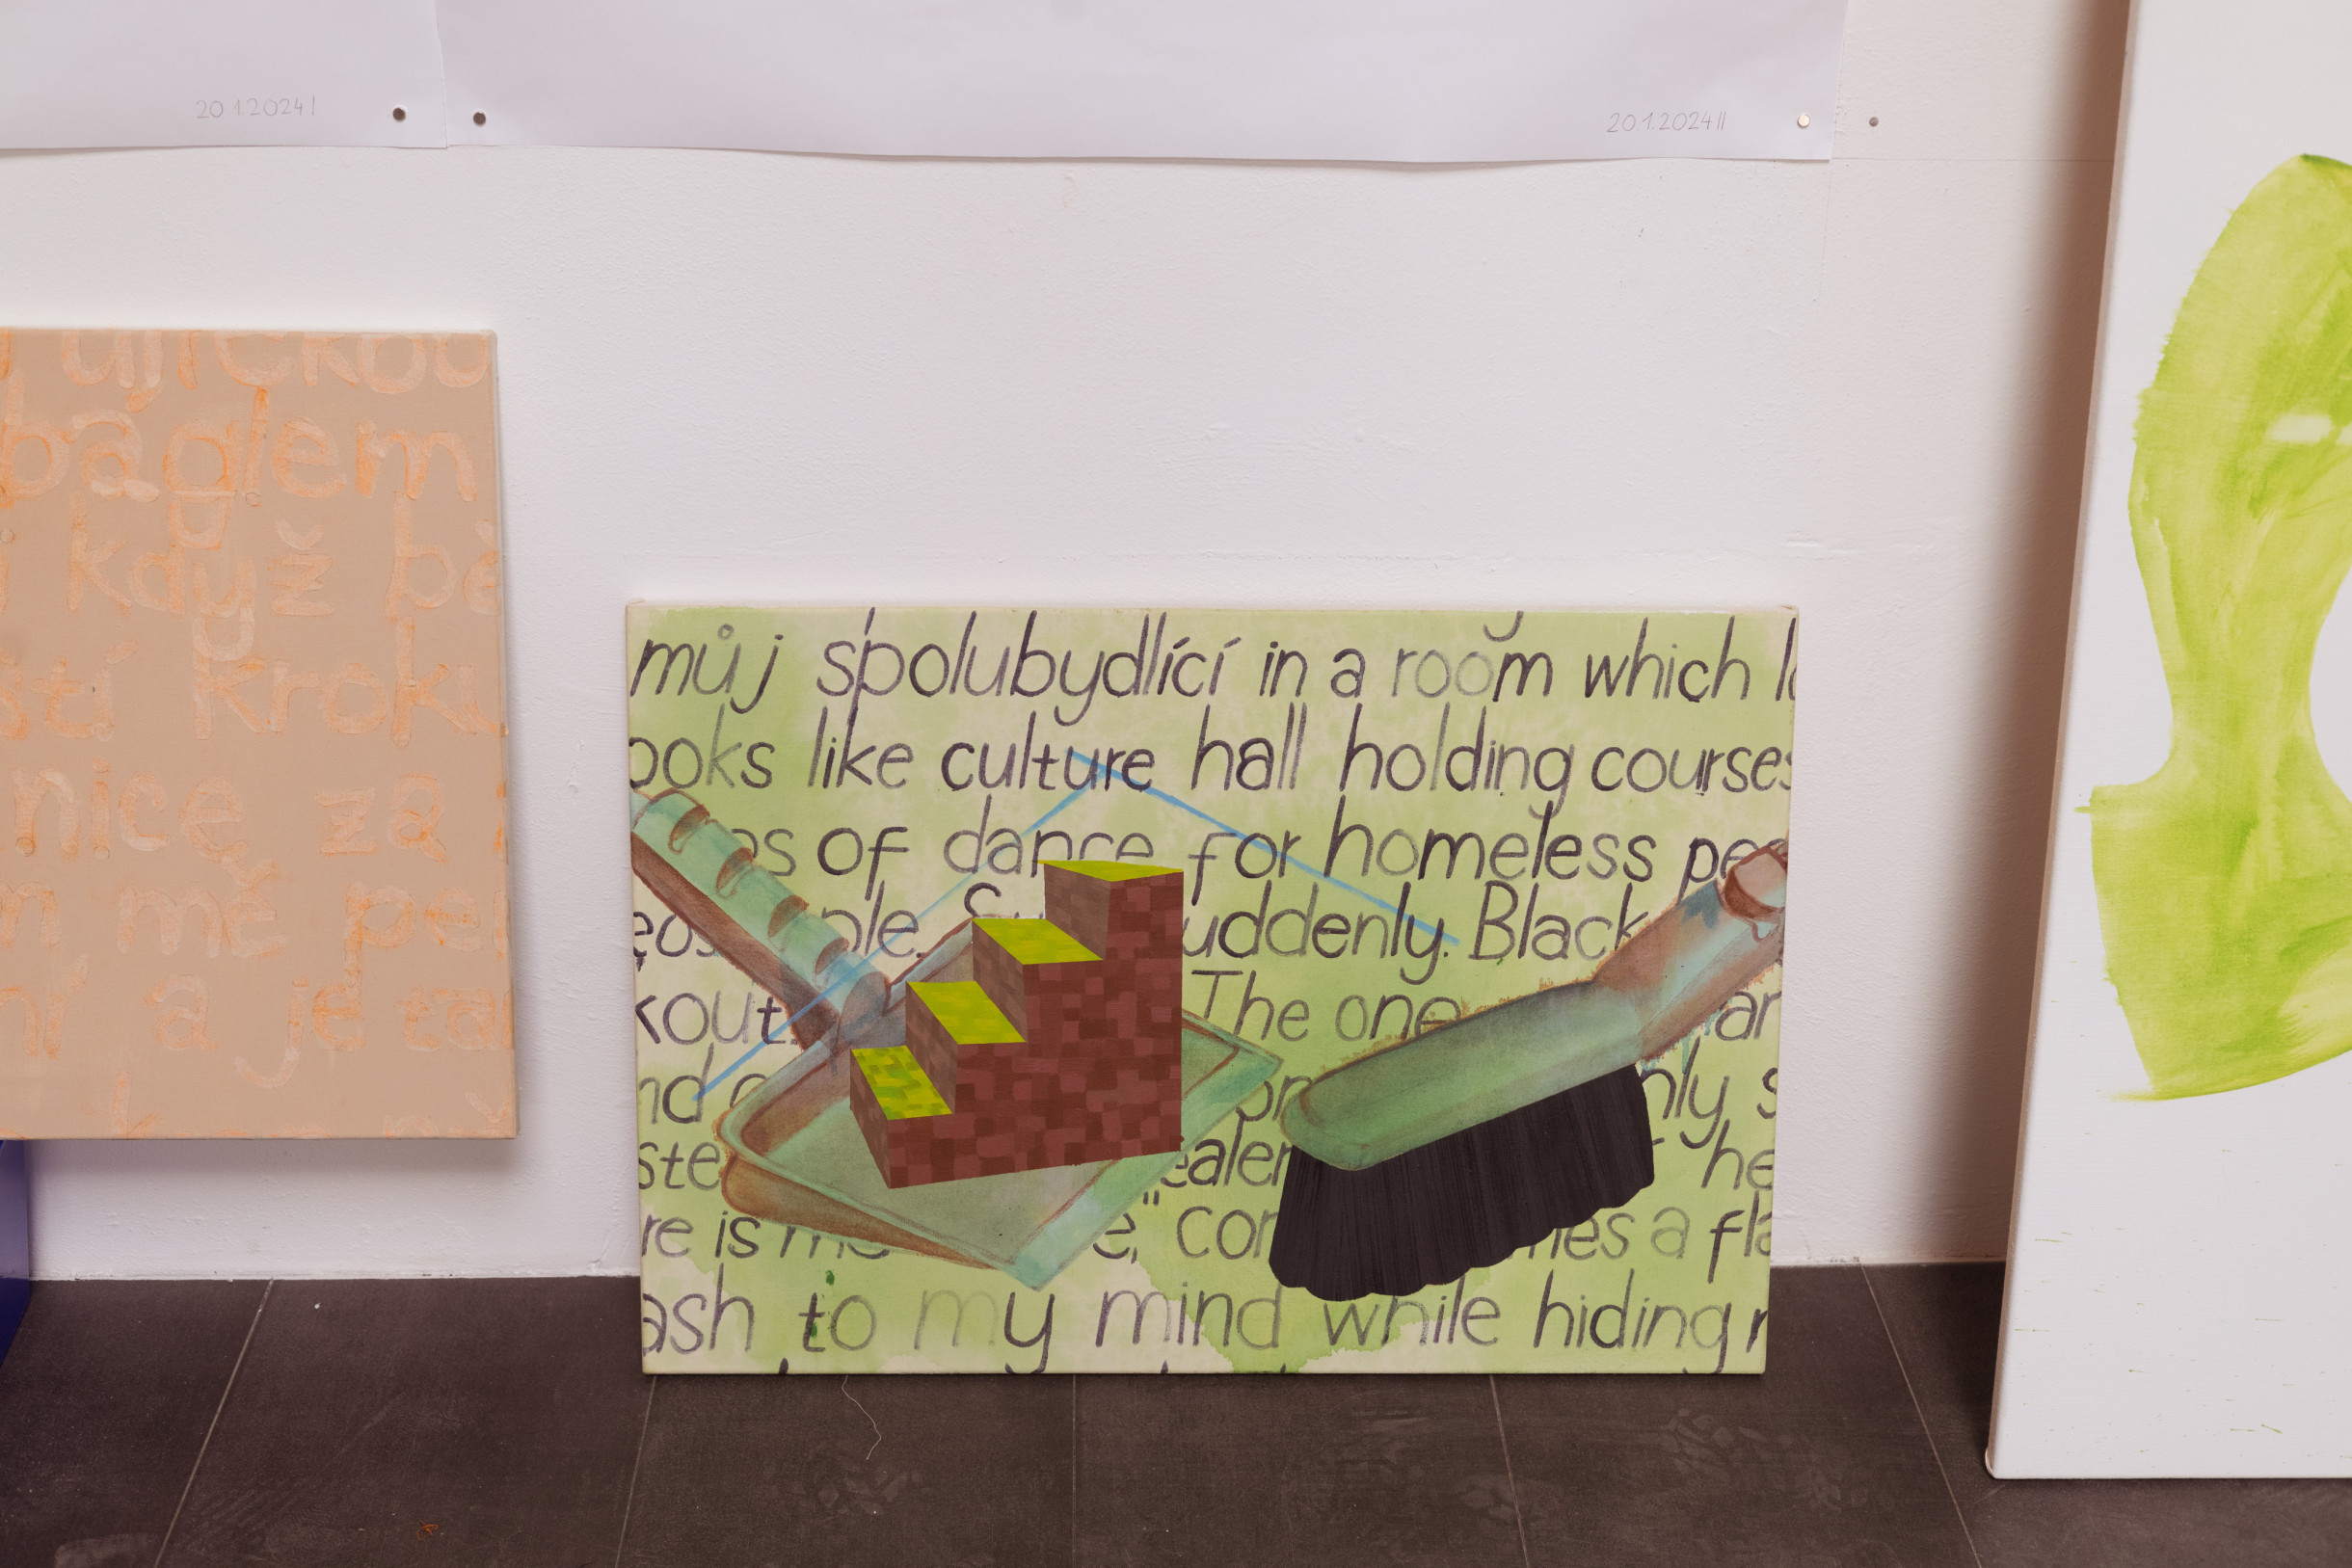 20.1.2024 I
20.1.2024 II
ujičkou
báglem
když bě
stí kroku
nice za
mě pe
ní a je ta
můj spolubydlící in a room which lo
ooks like culture hall holding courses
os of dance for homeless peo
eos ple. Su uddenly. Black
kout. The one an
nd nly s
ste ealer he
re is me e," com mes a fla
ash to my mind while hiding